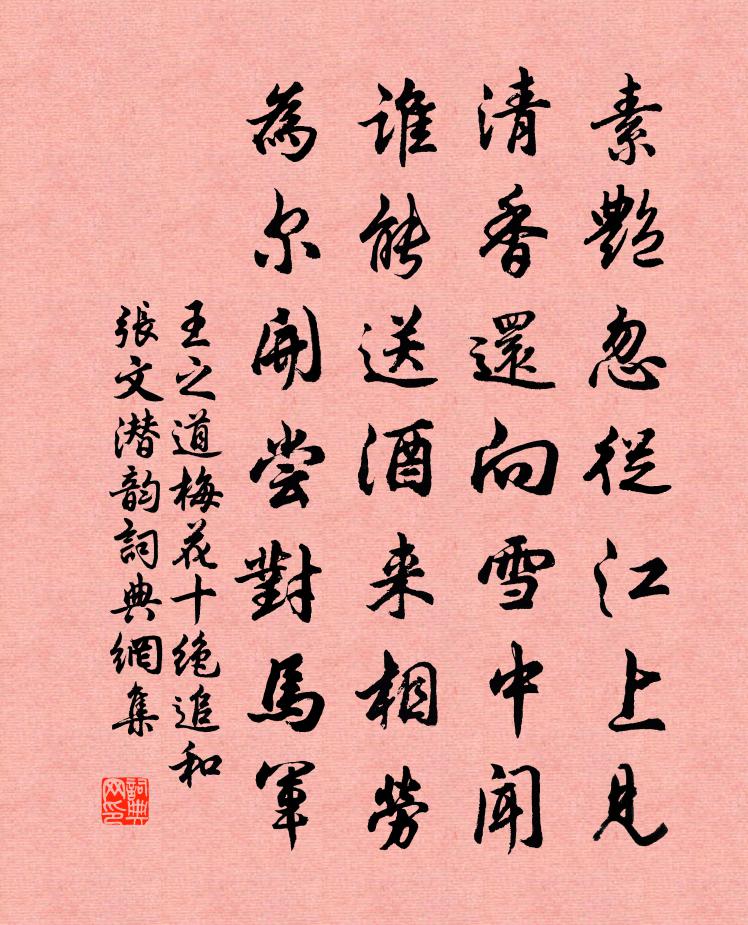 素艷忽從江上見
清香還向雪中聞
誰能送酒来相勞
為尔開嘗對馬軍
王之道梅花十绝追和
張文潜韵詞典網集
詞典网印